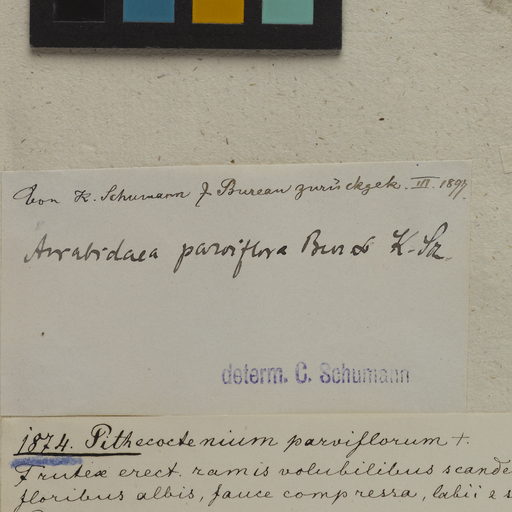 Von K. Schumann & Bureau zurückgek. III. 1897.
Arrabidaea parviflora Bur & K. Sch.
determ. C. Schumann
1874. Pithecoctenium parviflorum +.
Frutex erect. ramis volubilibus scande
floribus albis, fauce compressa, labii e s